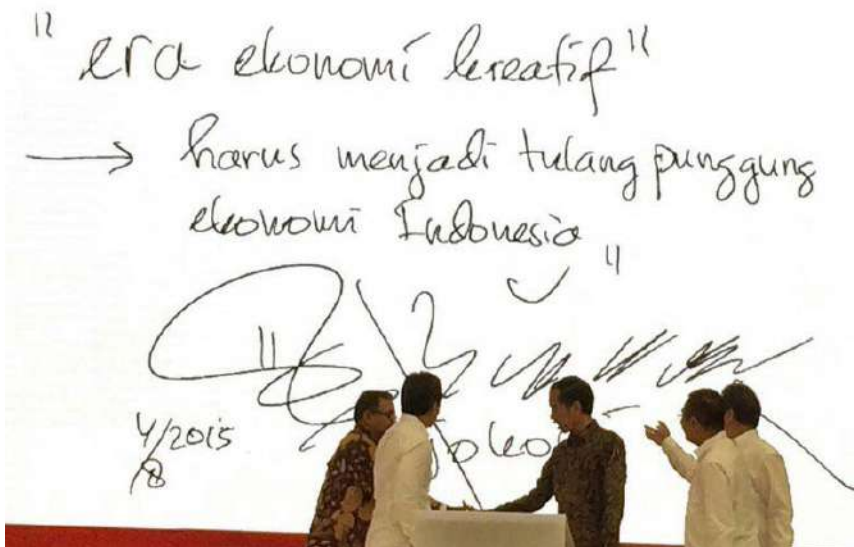 " era ekonomi kreatif "
→ harus menjadi tulang punggung
ekonomi Indonesia "
4/2015
8